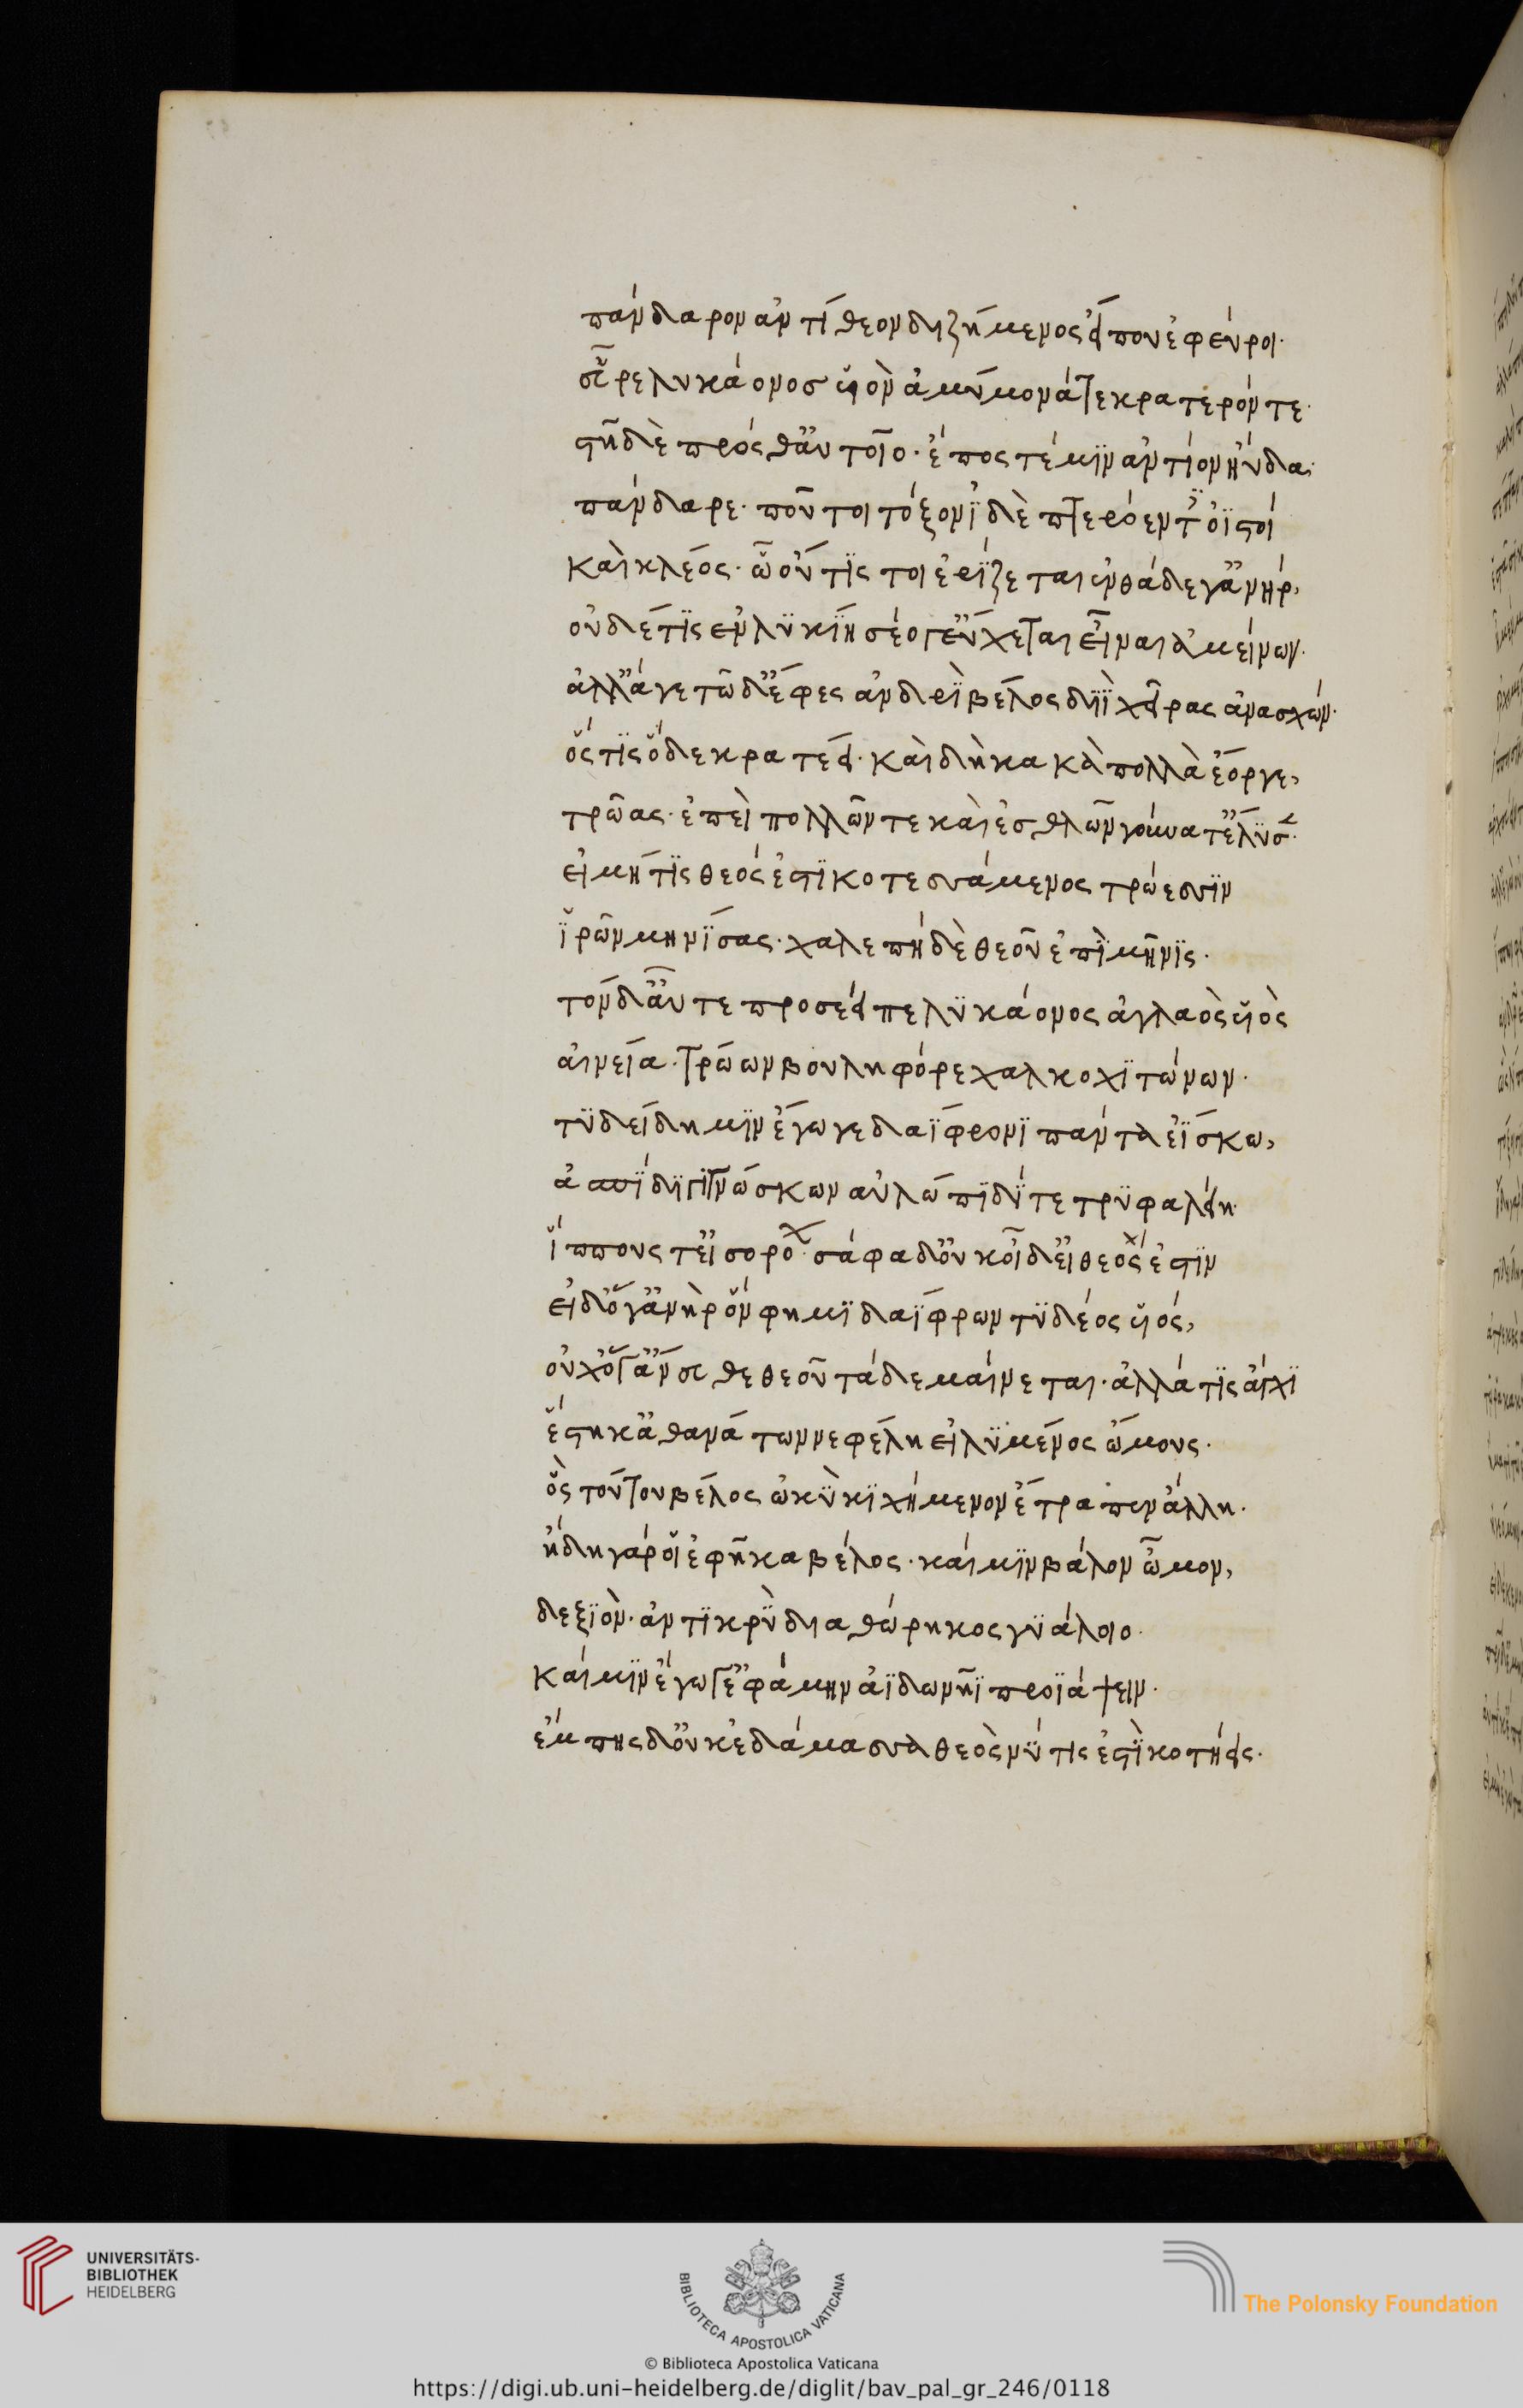 πάνδαρον ἀντίθεον διζήμενος εἴ που ἐφεύροι·
εὗρε λυκάονος υἱὸν ἀμύμονά τε κρατερόν τε·
στῆ δὲ πρόσθ' αὐτοῖο· ἔπος τέ μϊν ἀντίον ηὔδα·
πάνδαρε· ποῦ τοι τόξον ϊδὲ πτερόεντ' ὀϊστοί
καὶ κλέος· ὧ οὔ τϊς τοι ἐρίζεται ἐνθάδε γ' ἀνήρ,
οὐδέ τϊς ἐν λϋκίη σέο γ' εὔχεται εἶναι ἀμείνων·
ἀλλ' άγε τῶδ' ἔφες ἀνδρὶ βέλος διῒ χεῖρας ἀνασχών·
ὅς τϊς ὅδε κρατέει· καὶ δὴ κακὰ πολλὰ ἔοργε,
τρῶας· ἐπεὶ πολλῶν τε καὶ ἐσθλῶν γούνατ' ἔλϋσε·
εἰ μή τϊς θεός ἐστϊ κοτεσσάμενος τρώεσσϊν
ἵρῶν μηνίσας· χαλεπὴ δὲ θεοῦ ἐπὶ μῆνϊς·
τὸν δ' αὖτε προσέειπε λϋκάονος ἀγλαὸς υἱὸς
αἰνεία· τρώων βουληφόρε χαλκοχϊτώνων·
τϋδείδη μϊν ἔγωγε δαΐφρονϊ πάντα ἐΐσκω,
ἀσπίδϊ γιγνώσκων αὐλώπϊδί τε τρϋφαλείη·
ἵππους τ' εἰσορόων· σάφα δ' οὐκ οἶδ' εἰ θεός ἐστϊν
εἰ δ' ὅγ' ἀνὴρ ὅν φημϊ δαΐφρων τϋδέος υἱός,
οὐχ ὅγ' ἄνευθε θεοῦ τάδε μαίνεται· ἀλλά τϊς ἄγχϊ
ἕστηκ' ἀθανάτων νεφέλη εἰλϋμένος ὤμους·
ὃς τούτου βέλος ὠκὺ κϊχήμενον ἔτραπεν ἄλλη·
ἤδη γάρ οἱ ἐφῆκα βέλος· καί μϊν βάλον ὦμον,
δεξϊὸν· ἀντϊκρὺ διὰ θώρηκος γϋάλοιο·
καί μϊν ἔγωγ' ἐφάμην ἀϊδωνῆϊ προϊάψειν·
ἔμπης δ' οὐκ ἐδάμασσα θεός νύ τις ἐστὶ κοτήεις·
UNIVERSITÄTS-
BIBLIOTHEK
HEIDELBERG
BIBLIOTECA APOSTOLICA VATICANA
The Polonsky Foundation
© Biblioteca Apostolica Vaticana
https://digi.ub.uni-heidelberg.de/diglit/bav_pal_gr_246/0118